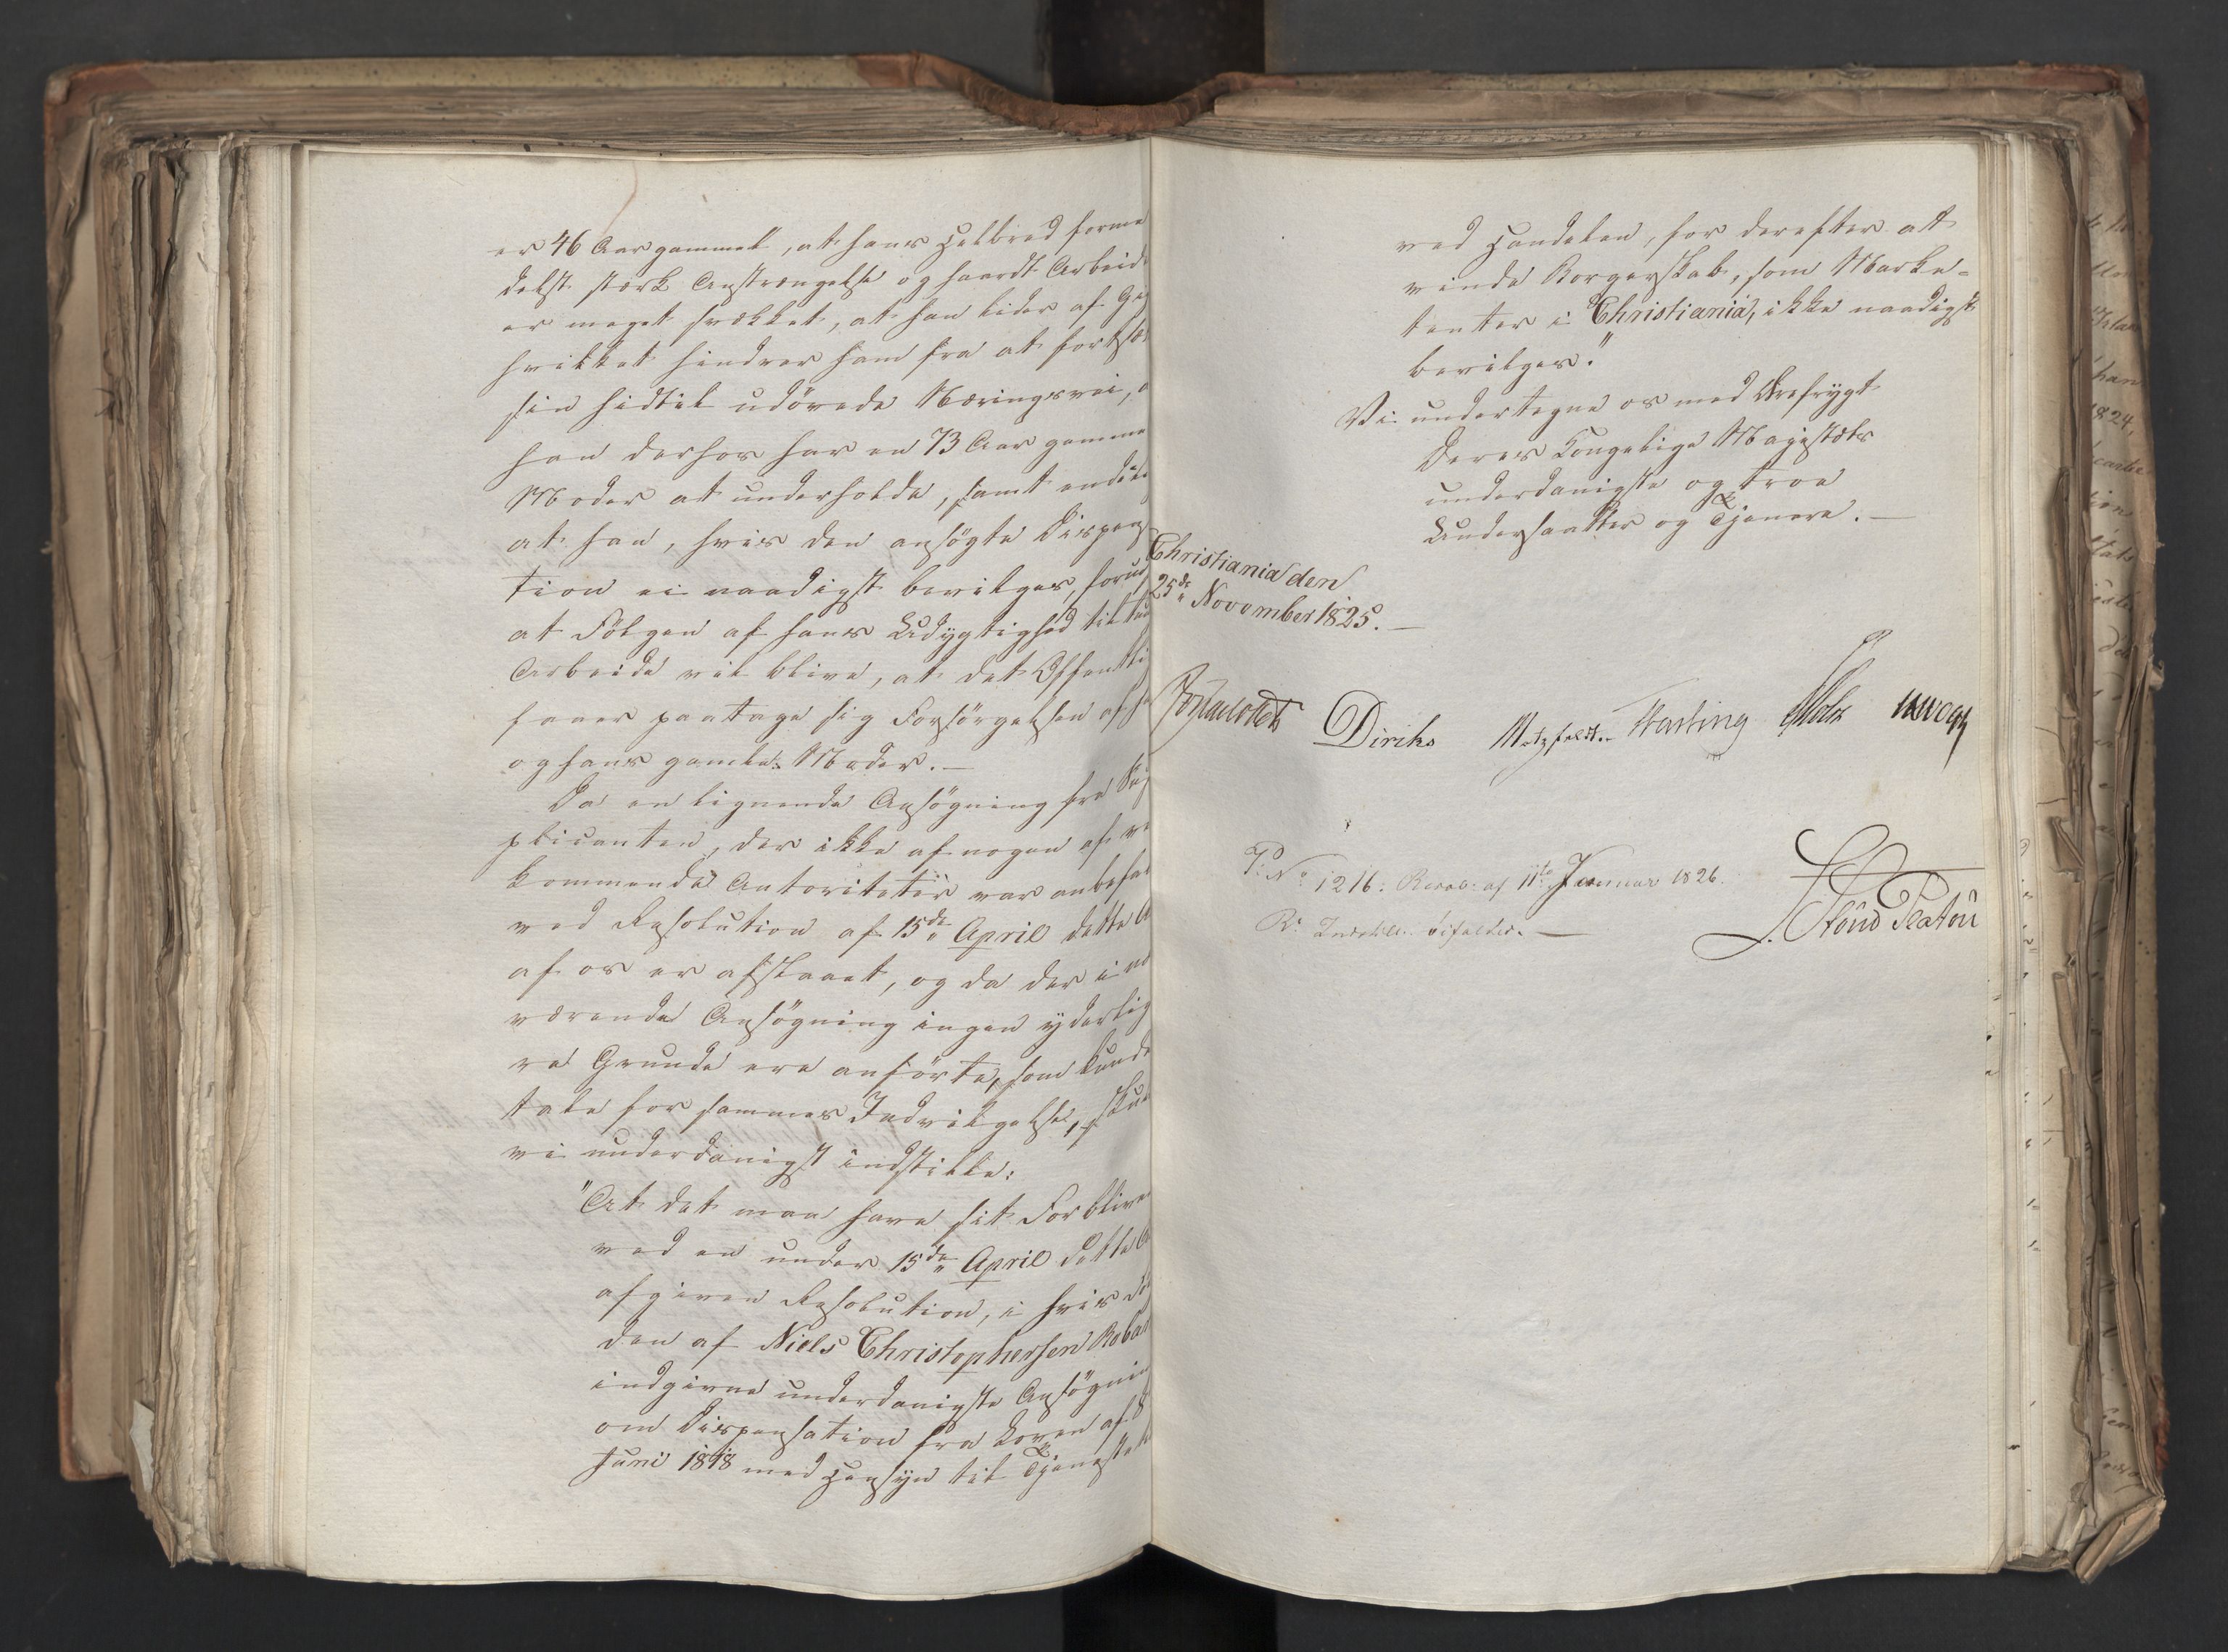 er 46 Aar gammel, at hans Helbred forme
delst stærk Anstrængelse og haardt Arbeide
er meget svækket, at han lider af Gig
hvilket hindrer ham fra at fortsæ
sin hidtil udøvede Næringsvei, o
han derhos har en 73 Aar gamme
Moder at underholde, samt endeli
at han, hvis den ansögte Dispens
tion ei naadigst bevilges, forud
at Fölgen af hans Udygtighed til
Arbeide vil blive, at det Offentli
faaer paatage sig Forsörgelsen af ha
og hans gamle Moder.—
Da en lignende Ansögning fra Sup
plicanten, der ikke af nogen af ved
kommende Autoriteter var anbefal
ved Resolution af 15de April dette A
af os er afslaaet, og da der i nær
værende Ansögning ingen yderlig
re Grunde ere anförte, som kunde
tale for sammes Indvilgelse, skul
vi underdanigst indstille:
"At det maa have sit Forblive
ved en under 15de April dette A
afgiven Resolution, i hvis
den af Niels Christophersen
indgivne underdanigste Ansögnin
om Dispensation fra Loven af 8
Juni 1818 med Hensyn til Tjeneste
ved Handelen, for derefter at
vinde Borgerskab, som Marke-
tenter i Christiania, ikke naadigst
bevilges."
Vi undertegne os med Ærefrygt
Deres Kongelige Majestæts
underdanigste og troe
Undersaatter og Tjenere.—
Christiania den
25de November 1825.—
Diriks Motzfeldt. Fasting Holst
P: No 1216. Resol: af 11te Januar 1826.
R: Indstill. bifaldes.—